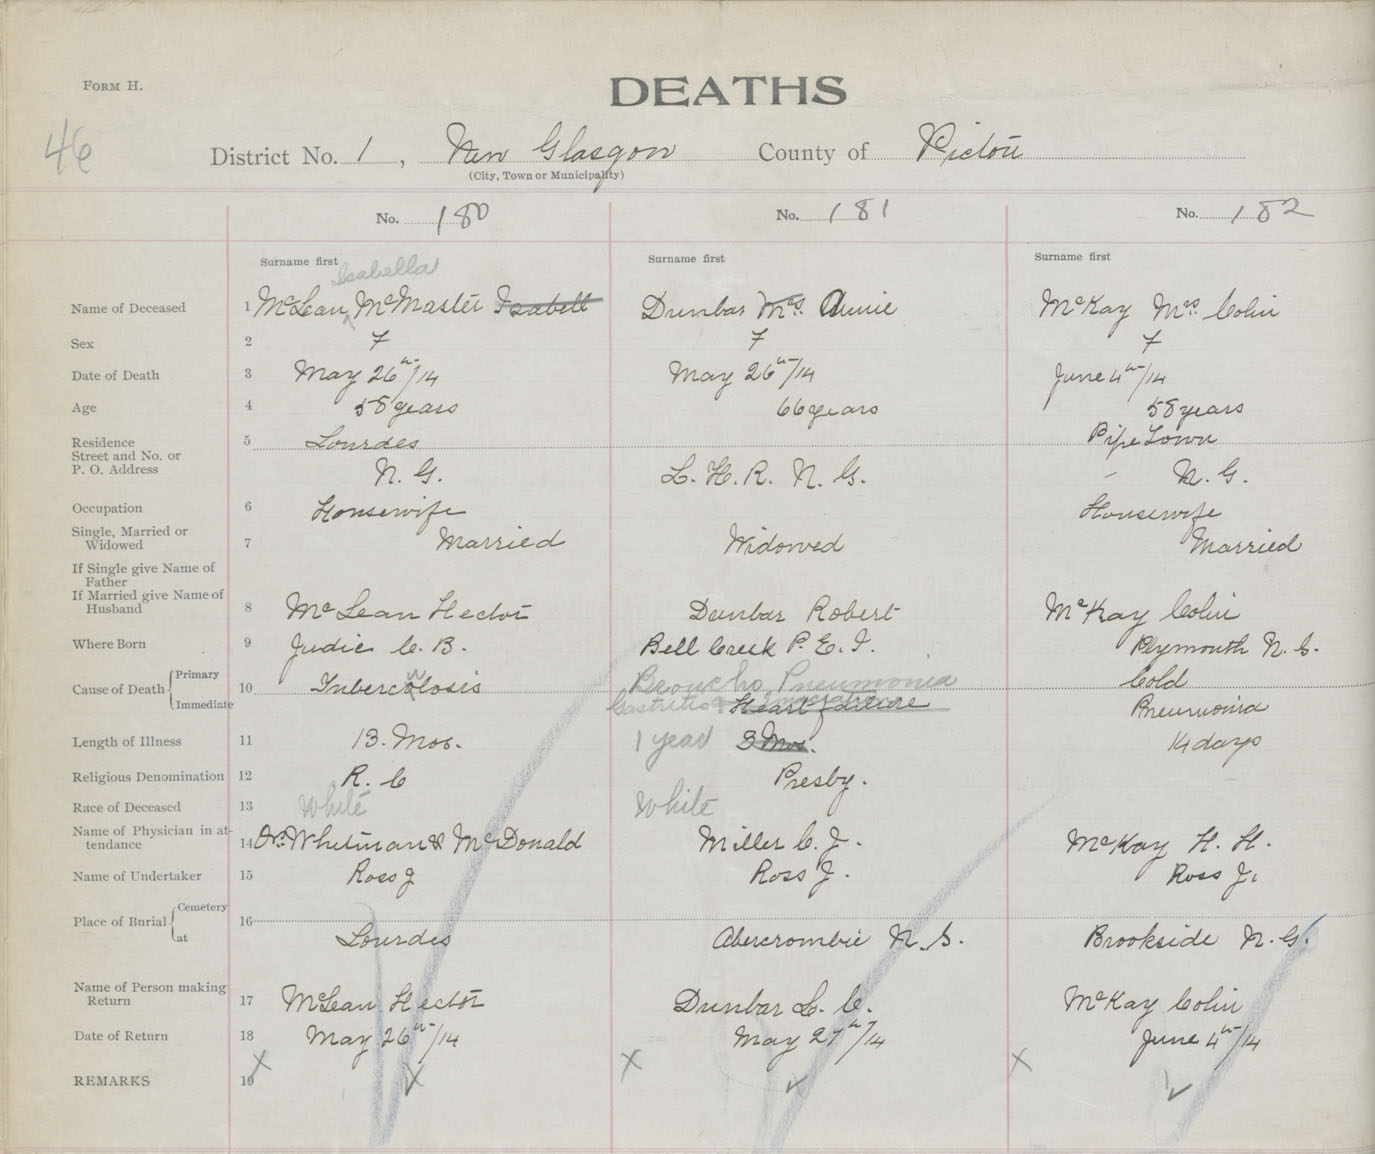 FORM H.
DEATHS
46
District No. 1, New Glasgow County of Pictou
(City, Town or Municipality)
No. 180 No. 181 No. 182
Surname first Surname first Surname first
Isabella
Name of Deceased 1 McLean McMaster Isabell Dunbar Mrs. Annie McKay Mrs. Colin
Sex 2 F F F
Date of Death 3 May 26th/14 May 26th/14 June 4th/14
Age 4 58 years 66 years 58 years
Residence 5 Lourdes Pipe Town
Street and No. or
P. O. Address N. G. L. H. R. N. G. N. G.
Occupation 6 Housewife Housewife
Single, Married or
Widowed 7 Married Widowed Married
If Single give Name of
Father
If Married give Name of
Husband 8 McLean Hector Dunbar Robert McKay Colin
Where Born 9 Judic C. B. Bell Creek P. E. I. Plymouth N. S.
Cause of Death Primary 10 Tuberculosis Broncho Pneumonia Cold
Immediate Gastritis Heart failure Pneumonia
Length of Illness 11 13. Mos. 1 year 3 Mos. 14 days
Religious Denomination 12 R. C Presby.
Race of Deceased 13 White White
Name of Physician in at-
tendance 14 Drs. Whitman & McDonald Miller C. J. McKay H. H.
Name of Undertaker 15 Ross J Ross J. Ross J.
Place of Burial Cemetery 16
at Lourdes Abercrombie N. S. Brookside N. S.
Name of Person making
Return 17 McLean Hector Dunbar L. C. McKay Colin
Date of Return 18 May 26th/14 May 27th/14 June 4th/14
REMARKS 19